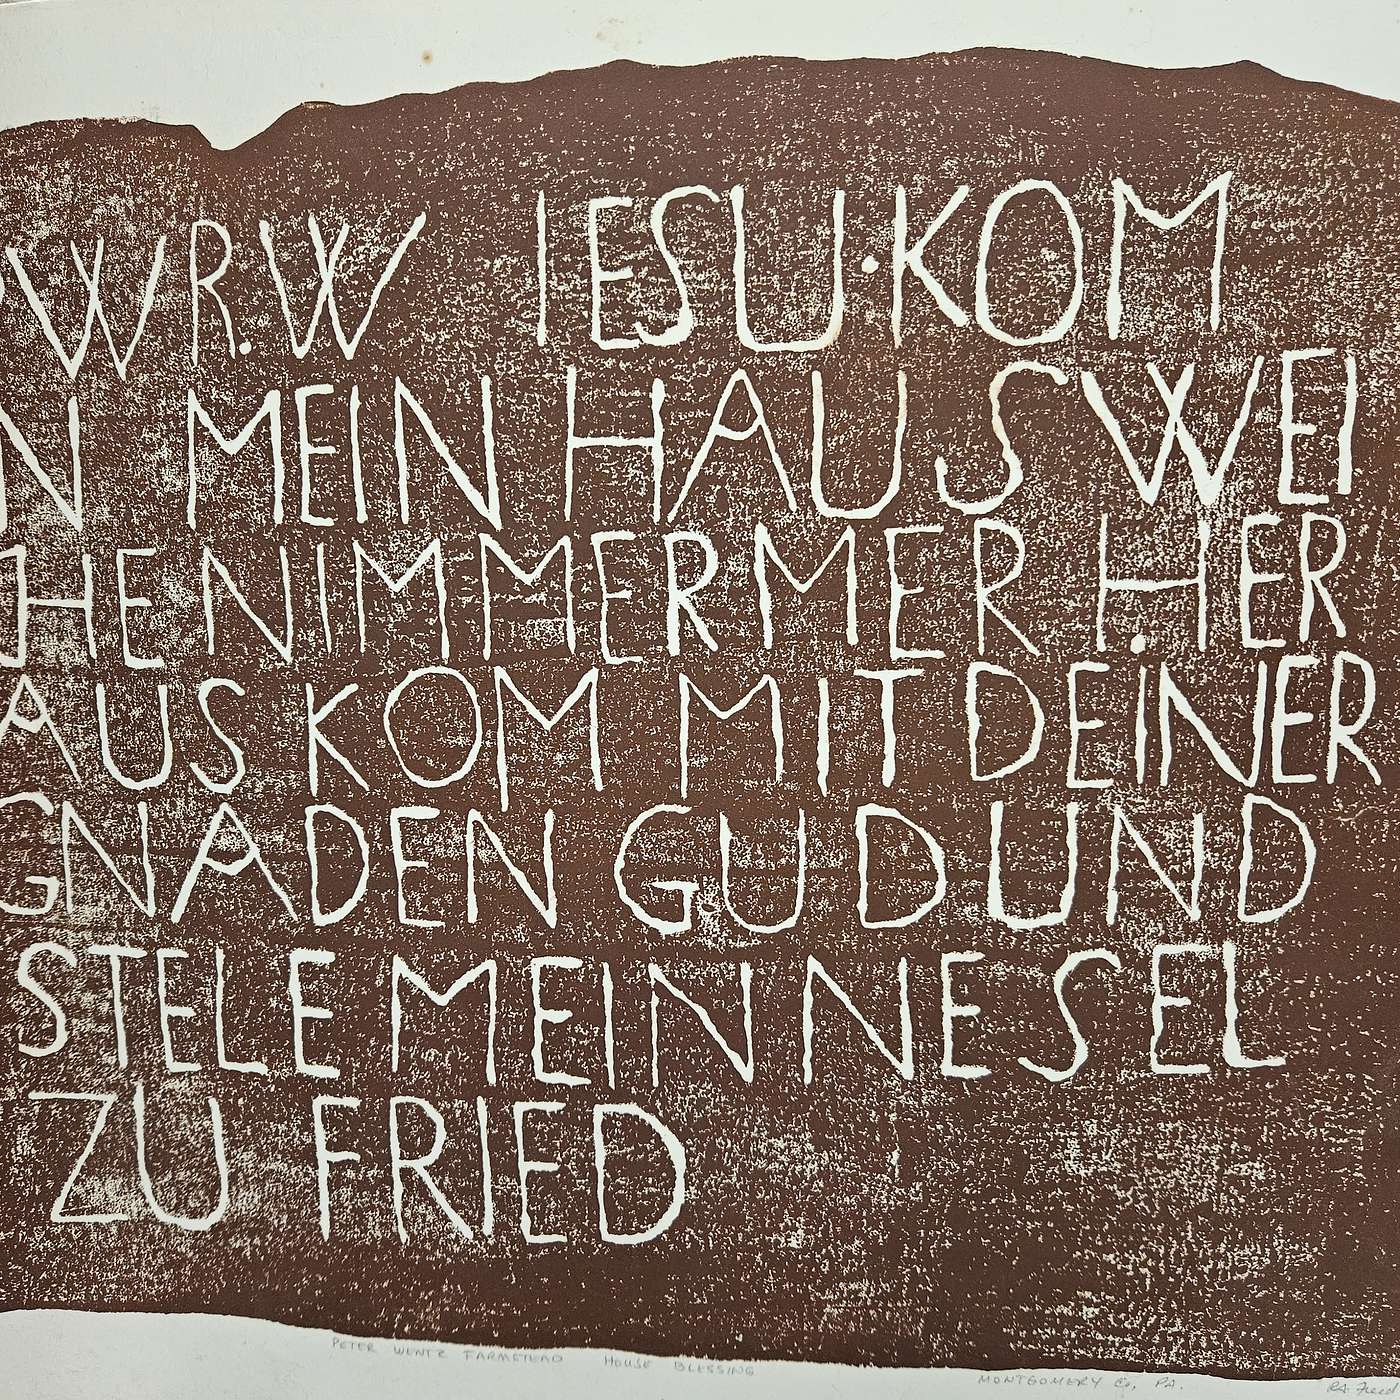 PW R.W IESU·KOM
N MEIN HAUS WEI
CHE NIMMERMER H.ER
AUS KOM MIT DEINER
GNADEN GUD UND
STELE MEINNE SEL
ZU FRIED
PETER WENTZ FARMSTEAD HOUSE BLESSING
MONTGOMERY Co, PA.